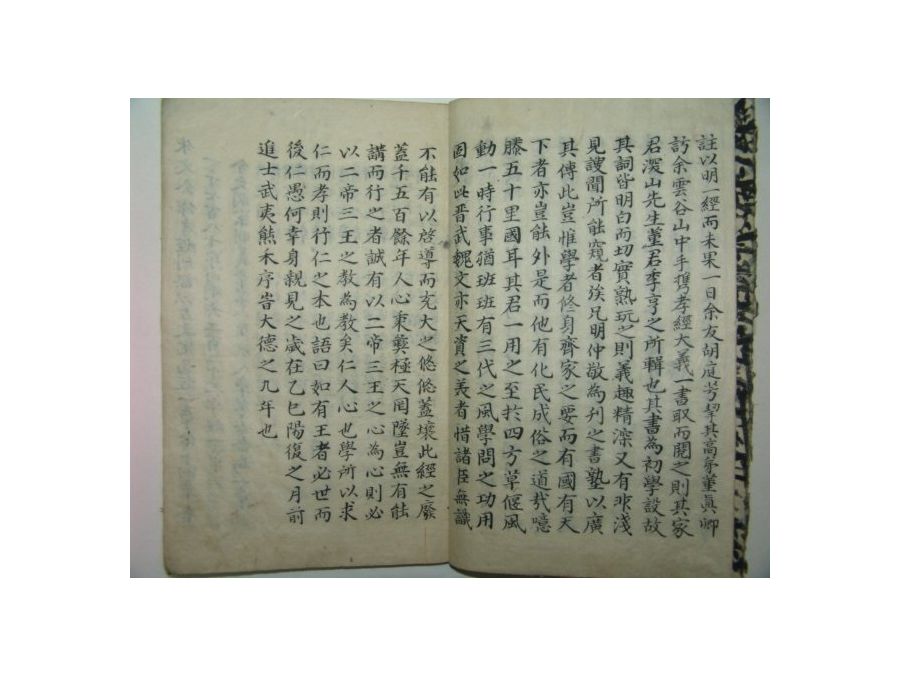 註以明一經而未果一日余友胡庭芳挈其高弟董真卿
訪余雲谷山中手携孝經大義一書取而閱之則其家
君深山先生董君季亨之所輯也其書為初學設故
其詞皆明白而切實熟玩之則義趣精深又有非淺
見謏聞所能窺者族兄明仲敬為刊之書塾以廣
其傳此豈惟學者修身齊家之要而有國有天
下者亦豈能外是而他有化民成俗之道哉噫
滕五十里國耳其君一用之至於四方草偃風
動一時行事猶班班有三代之風學問之功用
固如此晋武魏文亦天資之美者惜諸臣無識
不能有以啓導而充大之悠悠蓋壤此經之廢
蓋千五百餘年人心秉彝極天罔墜豈無有能
講而行之者誠有以二帝三王之心為心則必
以二帝三王之教為教矣仁人心也學所以求
仁而孝則行仁之本也語曰如有王者必世而
後仁愚何幸身親見之歲在乙巳陽復之月前
進士武夷熊禾序旹大德之九年也